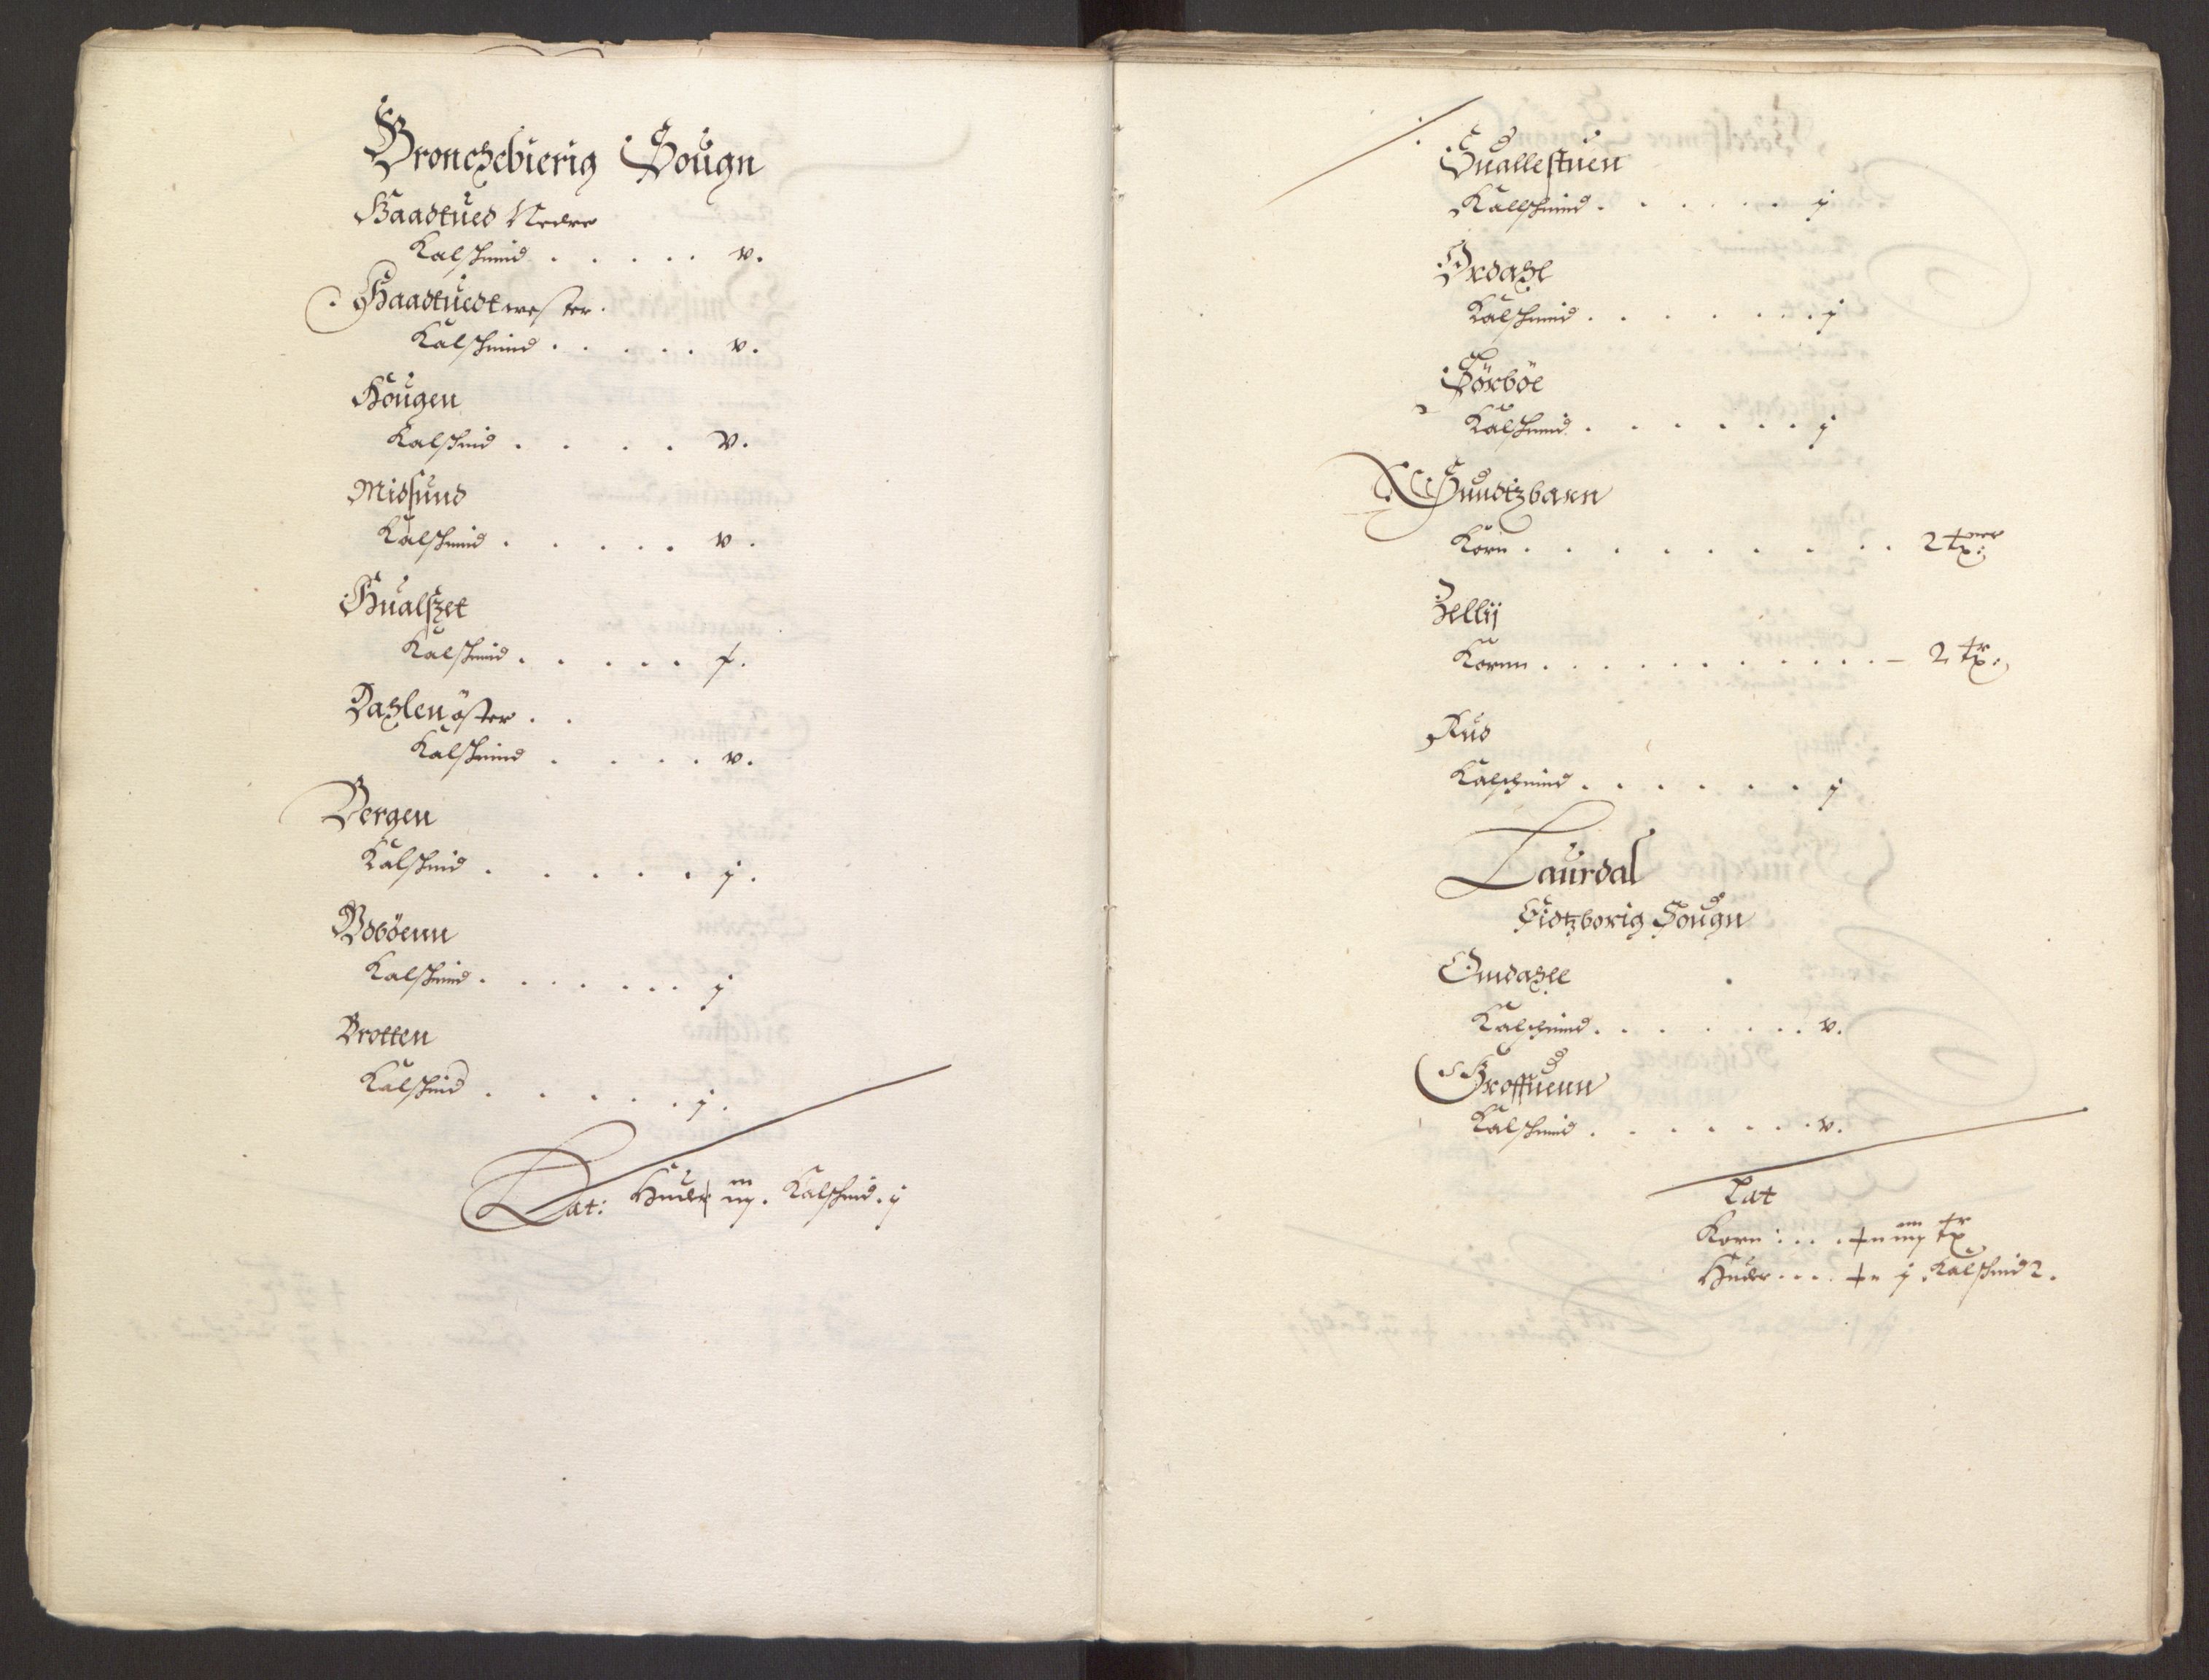 Bronckebierig Sougn
Haadtued Nedre
Kalschind . . . . . v.
Haadtuedt wester.
Kalschind . . . . . v.
Hougen
Kalschind . . . . v.
Midsund
Kalschind . . . . . v.
Hualszet
Kalschind . . . . . f.
Dahlen öster . .
Kalschind . . . . v.
Bergen
Kalschind . . . . . j.
Bdböenn
Kalschind . . . . . . j
Brotten
Kalschind . . . . . j.
Lat: Huder iiij. Kalschind. j
Suallestuen
Kallschind . . . . . . j
Ordahl
Kalschind . . . . . . . j
Sörböe
Kalschind . . . . . . j
Sundtzbarn
Korn . . . . . . . . . 2 tr:
Zellij
Kornn . . . . . . . . . . . – 2 tr:
Rud
Kalschind . . . . . . j
Laurdal
Eidtzborig Sougn
Omdahll
Kalschind . . . . . . . v.
Groffuenn
Kalschind . . . . . . . v.
Lat
Korn : . . . iiij tr
Huder . . . . j. Kalschind 2.